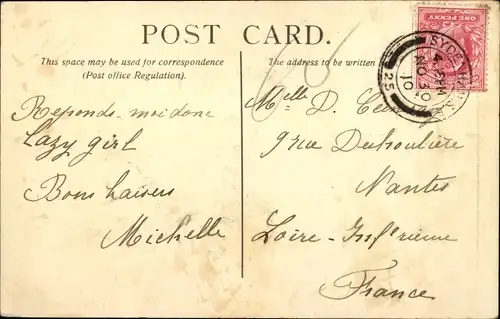 POST CARD.
This space may be used for correspondence
(Post office Regulation).
The address to be written
Reponds-moi donc
lazy girl
Bons baisers
Michelle
Melle D.
9 rue Deshoulière
Nantes
Loire-Inférieure
France
ONE PENNY
SYDENHAM
PM
NO 30
10
25